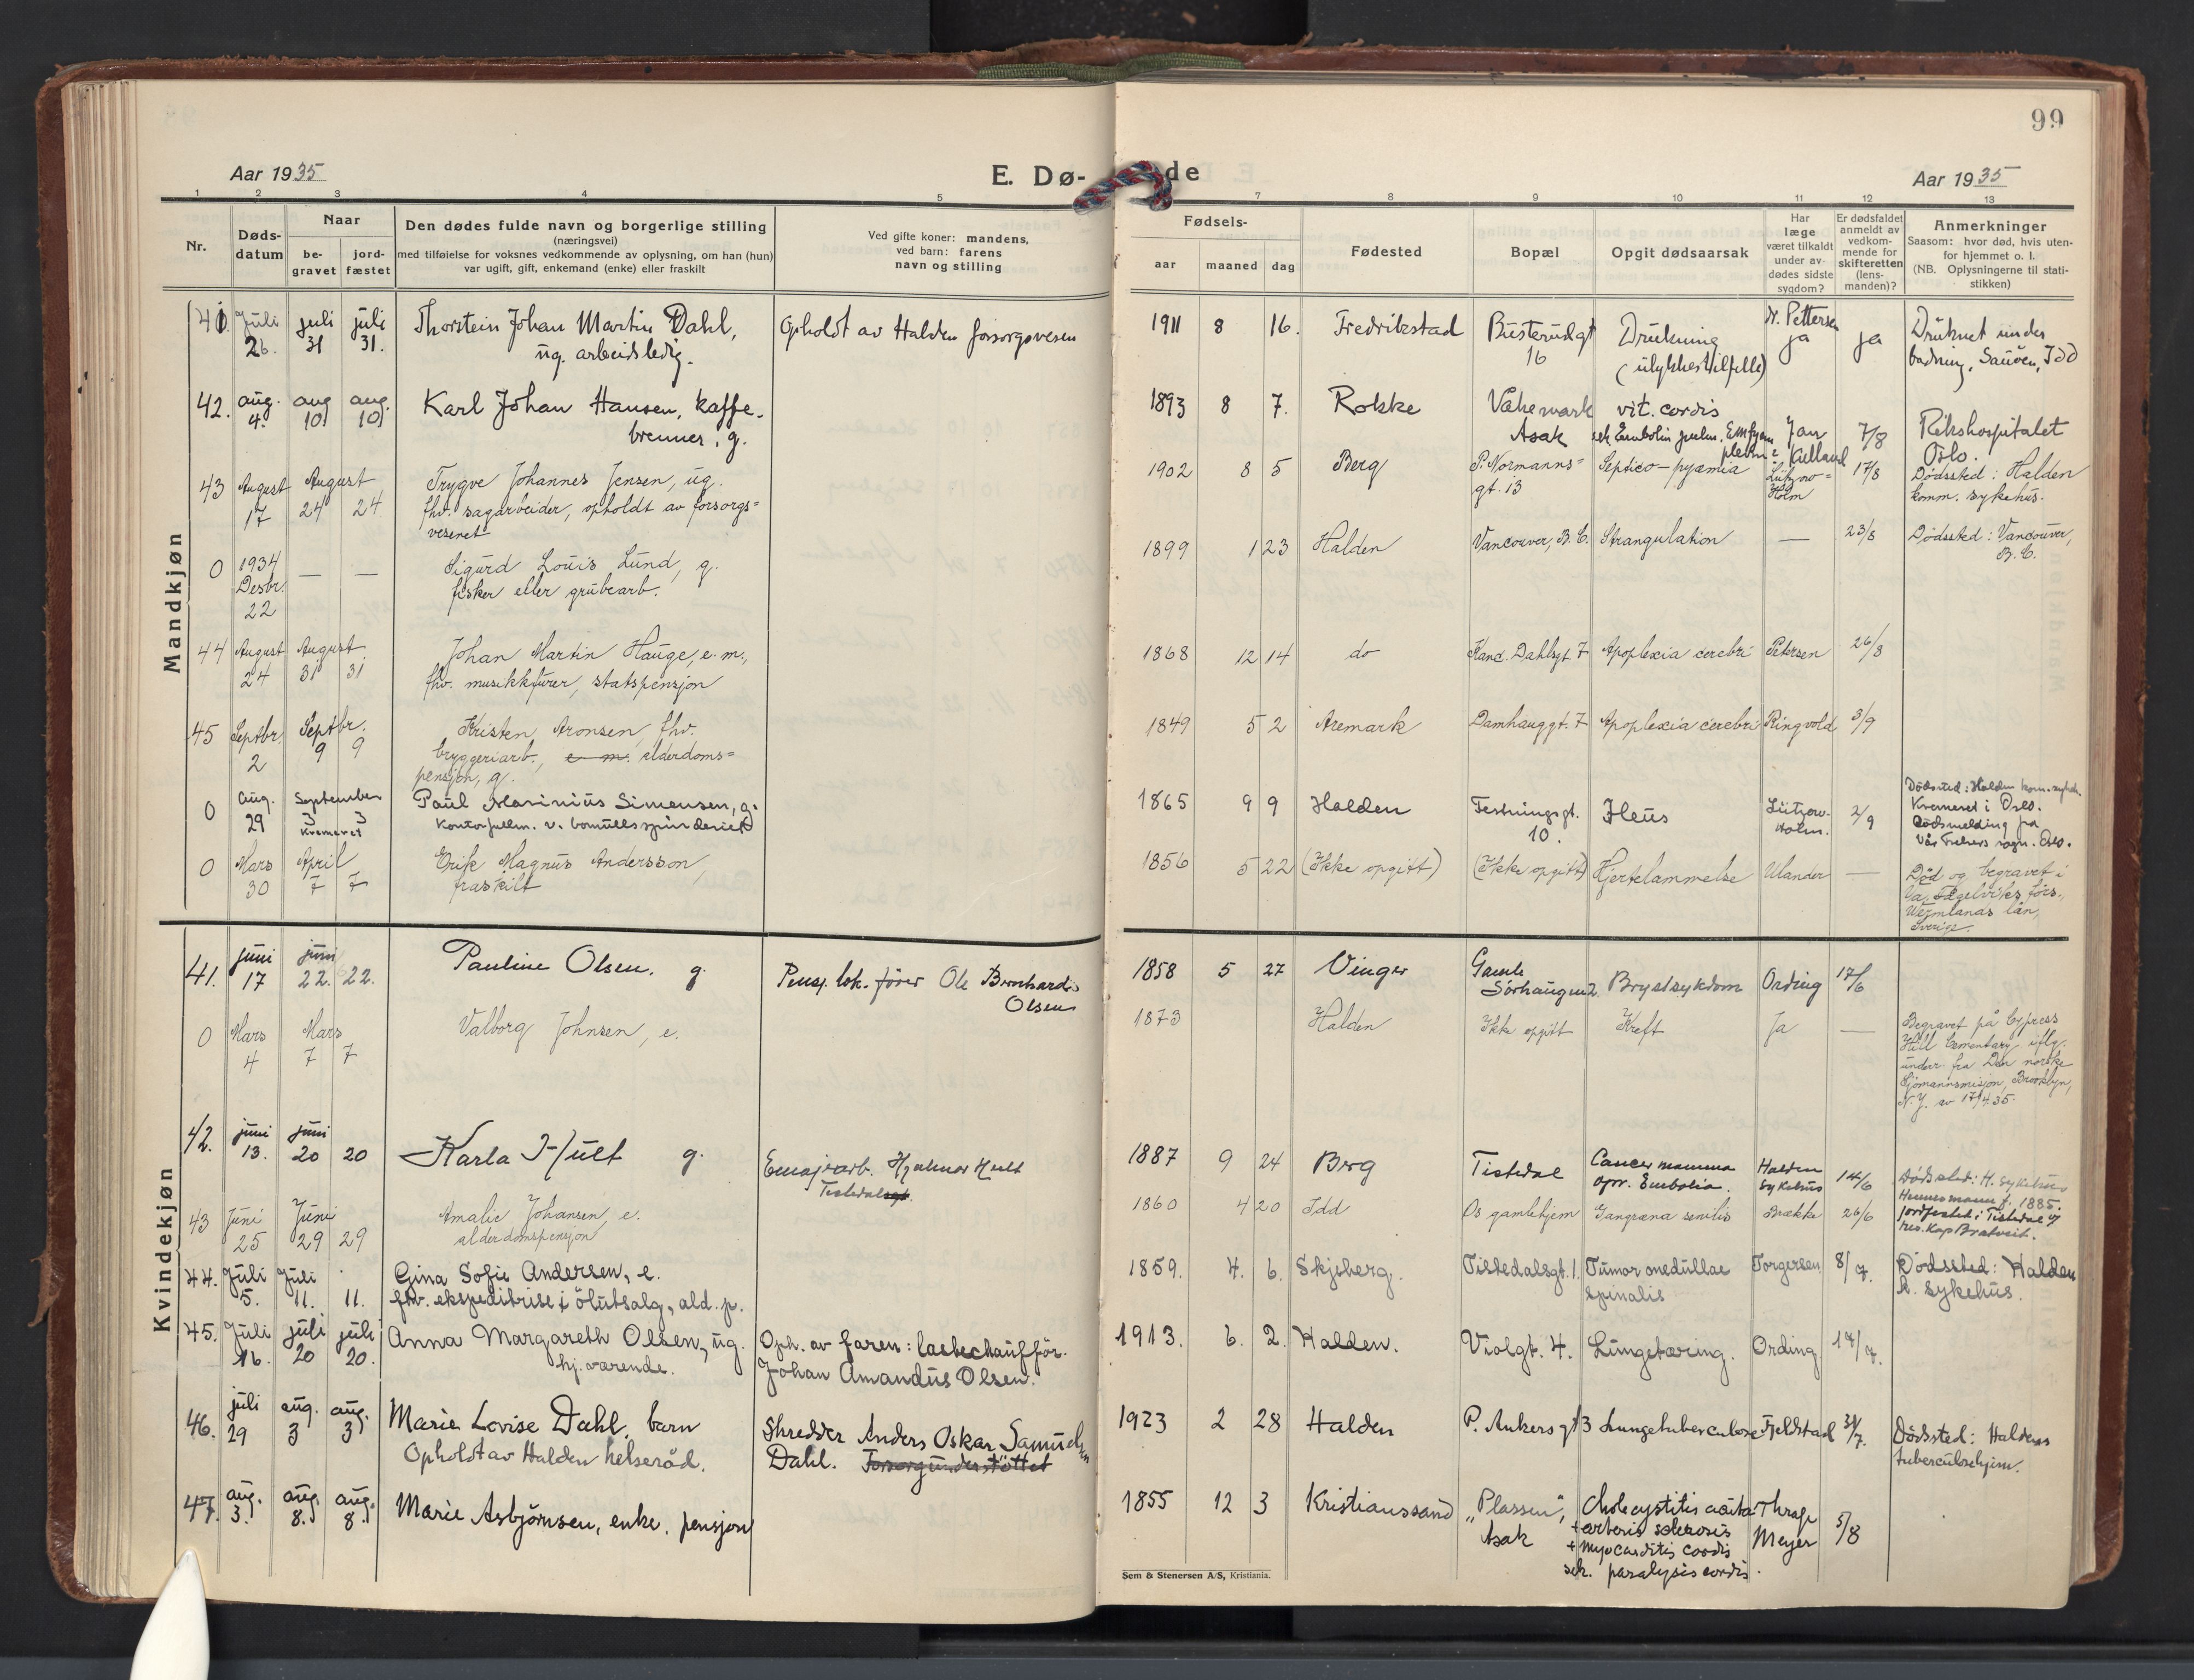 99
Aar 1935
E. Dø-
de
Aar 1935
1 2 3 4 5 7 8 9 10 11 12 13
Nr.
Døds-
datum
Naar
be-
gravet
jord-
fæstet
Den dødes fulde navn og borgerlige stilling
(næringsvei)
med tilføielse for voksnes vedkommende av oplysning, om han (hun)
var ugift, gift, enkemand (enke) eller fraskilt
Ved gifte koner: mandens,
ved barn: farens
navn og stilling
Fødsels-
aar
maaned
dag
Fødested
Bopæl
Opgit dødsaarsak
Har
læge
været tilkaldt
under av-
dødes sidste
sygdom?
Er dødsfaldet
anmeldt av
vedkom-
mende for
skifteretten
(lens-
manden)?
Anmerkninger
Saasom: hvor død, hvis uten-
for hjemmet o. l.
(NB. Oplysningerne til stati-
stikken)
Mandkjøn
41. Juli juli juli Thorstein Johan Martin Dahl, Opholdt av Halden forsorgsvesen 1911 8 16. Fredrikstad Büsterudgt Drukning Dr. Pettersen ja Druknet under
26. 31 31. ug. arbeidsledig. 16 (ulykkestilfelle) ja badning, Sauøen, Idd
42. aug. aug aug. Karl Johan Hansen, kaffe- 1893 8 7. Rokke Vakemark vit. cordis Jan 7/8 Rikshospitalet
4. 10. 10. brenner, g. Asak sek Embolia pulm. Empyem pleurae Kielland Oslo.
43 August August Trygve Johannes Jensen, ug. 1902 8 5 Berg P. Normanns= Septico-pyæmia Lützow= 17/8 Dødssted: Halden
17 24 24 fhv. sagarbeider, opholdt av forsorgs= gt. 13 Holm komm. sykehus.
vesenet
0 1934 — — Sigurd Louis Lund, g. 1899 1 23 Halden Vancouver, B. C. Strangulation — 23/8 Dødssted: Vancouver,
Desbr. fisker eller grubearb. B. C.
22
44 August August Johan Martin Hauge, e. m., 1868 12 14 do Kand. Dahlsgt 7 Apoplexia cerebri Petersen 26/8
24 31 31 fhv. musikkfurer, statspensjon
45 Septbr. Septbr. Kristen Aronsen, fhv. 1849 5 2 Aremark Damhauggt. 7 Apoplexia cerebri Ringvold 3/9
2 9 9 bryggeriarb., e. m. alderdoms=
pensjon, g.
0 Aug. September Paul Marinius Simensen, g. 1865 9 9 Halden Festningsgt. Ileus Lützow- 2/9 Dødssted: Halden kom. sykeh.
29 3 3 Kontorfullm. v. bomullsspinderiet 10. Holm. Kremeret i Oslo.
Kremeret Dødsmelding fra
Vår Frelsers sogn. Oslo.
0 Mars April Erik Magnus Andersson, 1856 5 22 (Ikke opgitt) (Ikke opgitt) Hjertelammelse Ulander — Död og begravet i
30 7 7 fraskilt Va. Fägelviks förs.,
Vermlands län,
Sverige.
Kvindekjøn
41. juni juni Pauline Olsen. g. Pensj. lok. fører Ole Bernhard 1858 5 27 Vinger Gamle Brystsykdom Ording 17/6
17 22. 22. Olsen Sørhaugen 2.
0 Mars Mars Valborg Johnsen, e. 1873 Halden Ikke opgitt Kreft Ja — Begravet på Cypress
4 7 7 Hill Cementary iflg.
underr. fra Den norske
Sjømannsmisjon, Brooklyn,
N. Y. av 17/4 35.
42. juni juni Karla Hult g. Emajearb. Hjalmar Hult 1887 9 24 Berg Tistedal Cancer mamma Halden 14/6 Dødssted: H. sykehus
13. 20 20 Tistedalsgt. opr. Embolia. sykehus Hennes mann f. 1885.
jordfestet i Tistedal v/
res. kap Bratveit.
43 Juni Juni Amalie Johansen, e. 1860 4 20 Idd Os gamlehjem Gangræna senilis Brække 26/6
25 29 29 alderdomspensjon
44. Juli Juli Gina Sofie Andersen, e. 1859. 4. 6. Skjeberg. Tistedalsgt. 1. Tumor medullae Torgersen 8/7. Dødssted: Halden
5. 11. 11. fhv. ekspeditrise i ölutsalg, ald. p. spinalis k. sykehus.
45. Juli juli juli Anna Margareth Olsen, ug. Oph. av faren: lastechauffør. 1913. 6. 2. Halden. Violgt. 4. Lungetæring. Ording 17/7.
16. 20 20. hj. værende. Johan Amandus Olsen.
46. juli aug. aug. Marie Lovise Dahl, barn Skredder Anders Oskar Samuelsen 1923 2 28 Halden P. Ankers gt 3 Lungetuberculose Fjeldstad 31/7. Dødssted: Haldens
29 3 3 Opholdt av Halden helseråd. Dahl. Forsorgunderstöttet tuberculosehjem.
47. aug. aug. aug. Marie Asbjørnsen, enke. pensjon 1855 12 3 Kristianssand „Plassen", Cholecystitis acuta Thrap 5/8
3. 8. 8. Asak + arterio sclerosis Meyer
+ myocarditis cordis
sek. paralysis cordis.
Sem & Stenersen A/S, Kristiania.